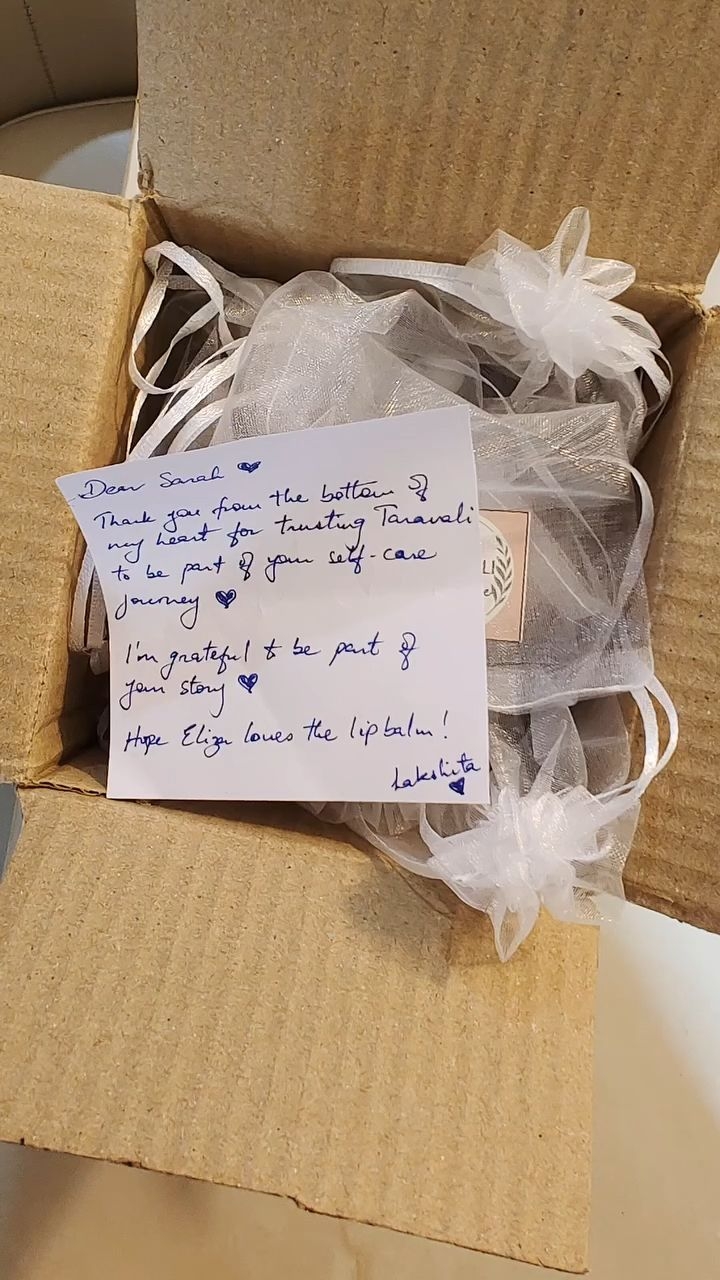 Dear Sarah 💙
Thank you from the bottom of
my heart for trusting Taravali
to be part of your self-care
journey 💙
I'm grateful to be part of
your story 💙
Hope Eliza loves the lipbalm!
Lakshita
💙
LI